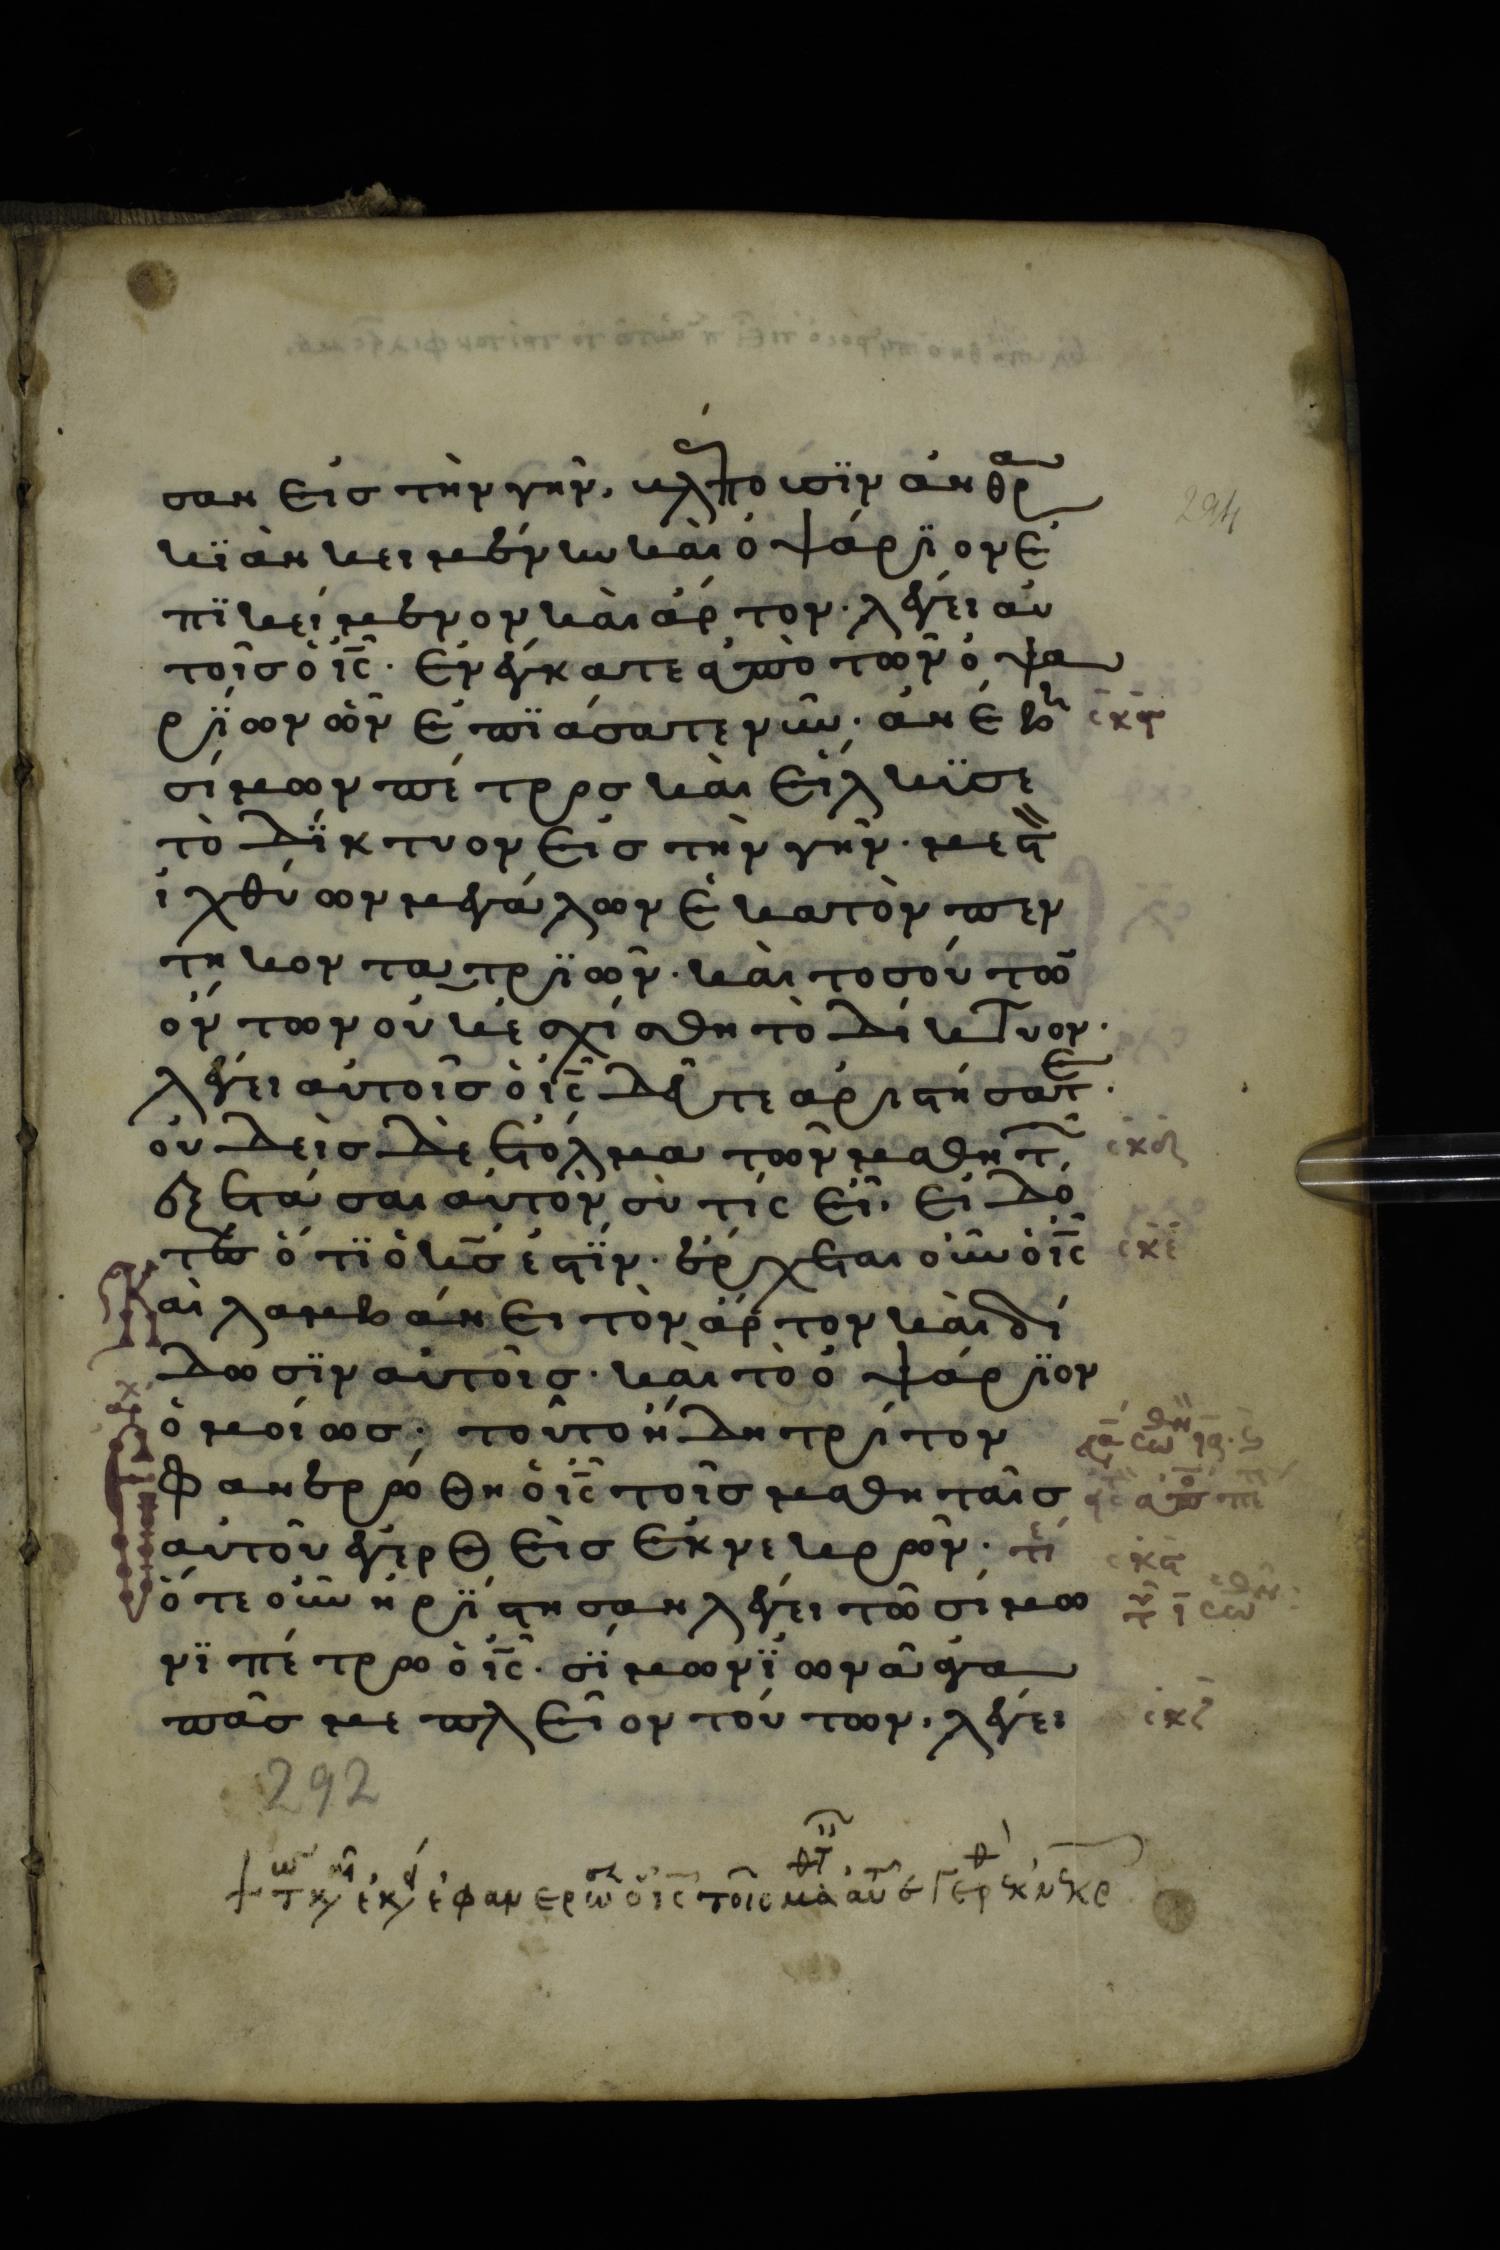 σαν εἰς τὴν γῆν, βλέπουσϊν ἀνθρα
κϊὰν κειμένην καὶ ὀψάρϊον ἐ
πϊκείμενον καὶ ἄρτον· λέγει αὐ
τοῖς ὁ ῑς̄· ἐνέγκατε ἀπὸ τῶν ὀψα
ρϊων ὧν ἐπϊάσατε νῦν· ἀνέβη
σίμων πέτρος καὶ εἵλκϋσε
τὸ δϊκτυον εἰς τὴν γῆν· μεστ
ἰχθύων μεγάλων ἑκατὸν πεν
τηκοντατρϊῶν· καὶ τοσούτων
ὄντων οὐκ ἐσχίσθη τὸ δίκτυον·
λέγει αὐτοῖς ὁ ῑς̄ δεῦτε ἀριστήσατε·
οὐδεὶς δὲ ἐτόλμα τῶν μαθητ
ἐξετάσαι αὐτὸν σὺ τίς εἶ· εἰδό
τες ὅτϊ ὁ κ̄ς̄ ἐστϊν· ἔρχεται οὖν ὁ ῑς̄
Καὶ λαμβάνει τὸν ἄρτον καὶ δί
δωσϊν αὐτοῖς· καὶ τὸ ὀψάρϊον
ὁμοίως· τοῦτο ἤδη τρίτον
ἐφανερώθη ὁ ῑς̄ τοῖς μαθηταῖς
αὐτοῦ ἐγερθεὶς ἐκ νεκρῶν·
ὅτε οὖν ἠρϊστησαν λέγει τῶ σίμω
νϊ πέτρω ὁ ῑς̄· σϊμων ϊωνᾶ ἀγα
πᾶς με πλεῖον τούτων· λέγει
292
294